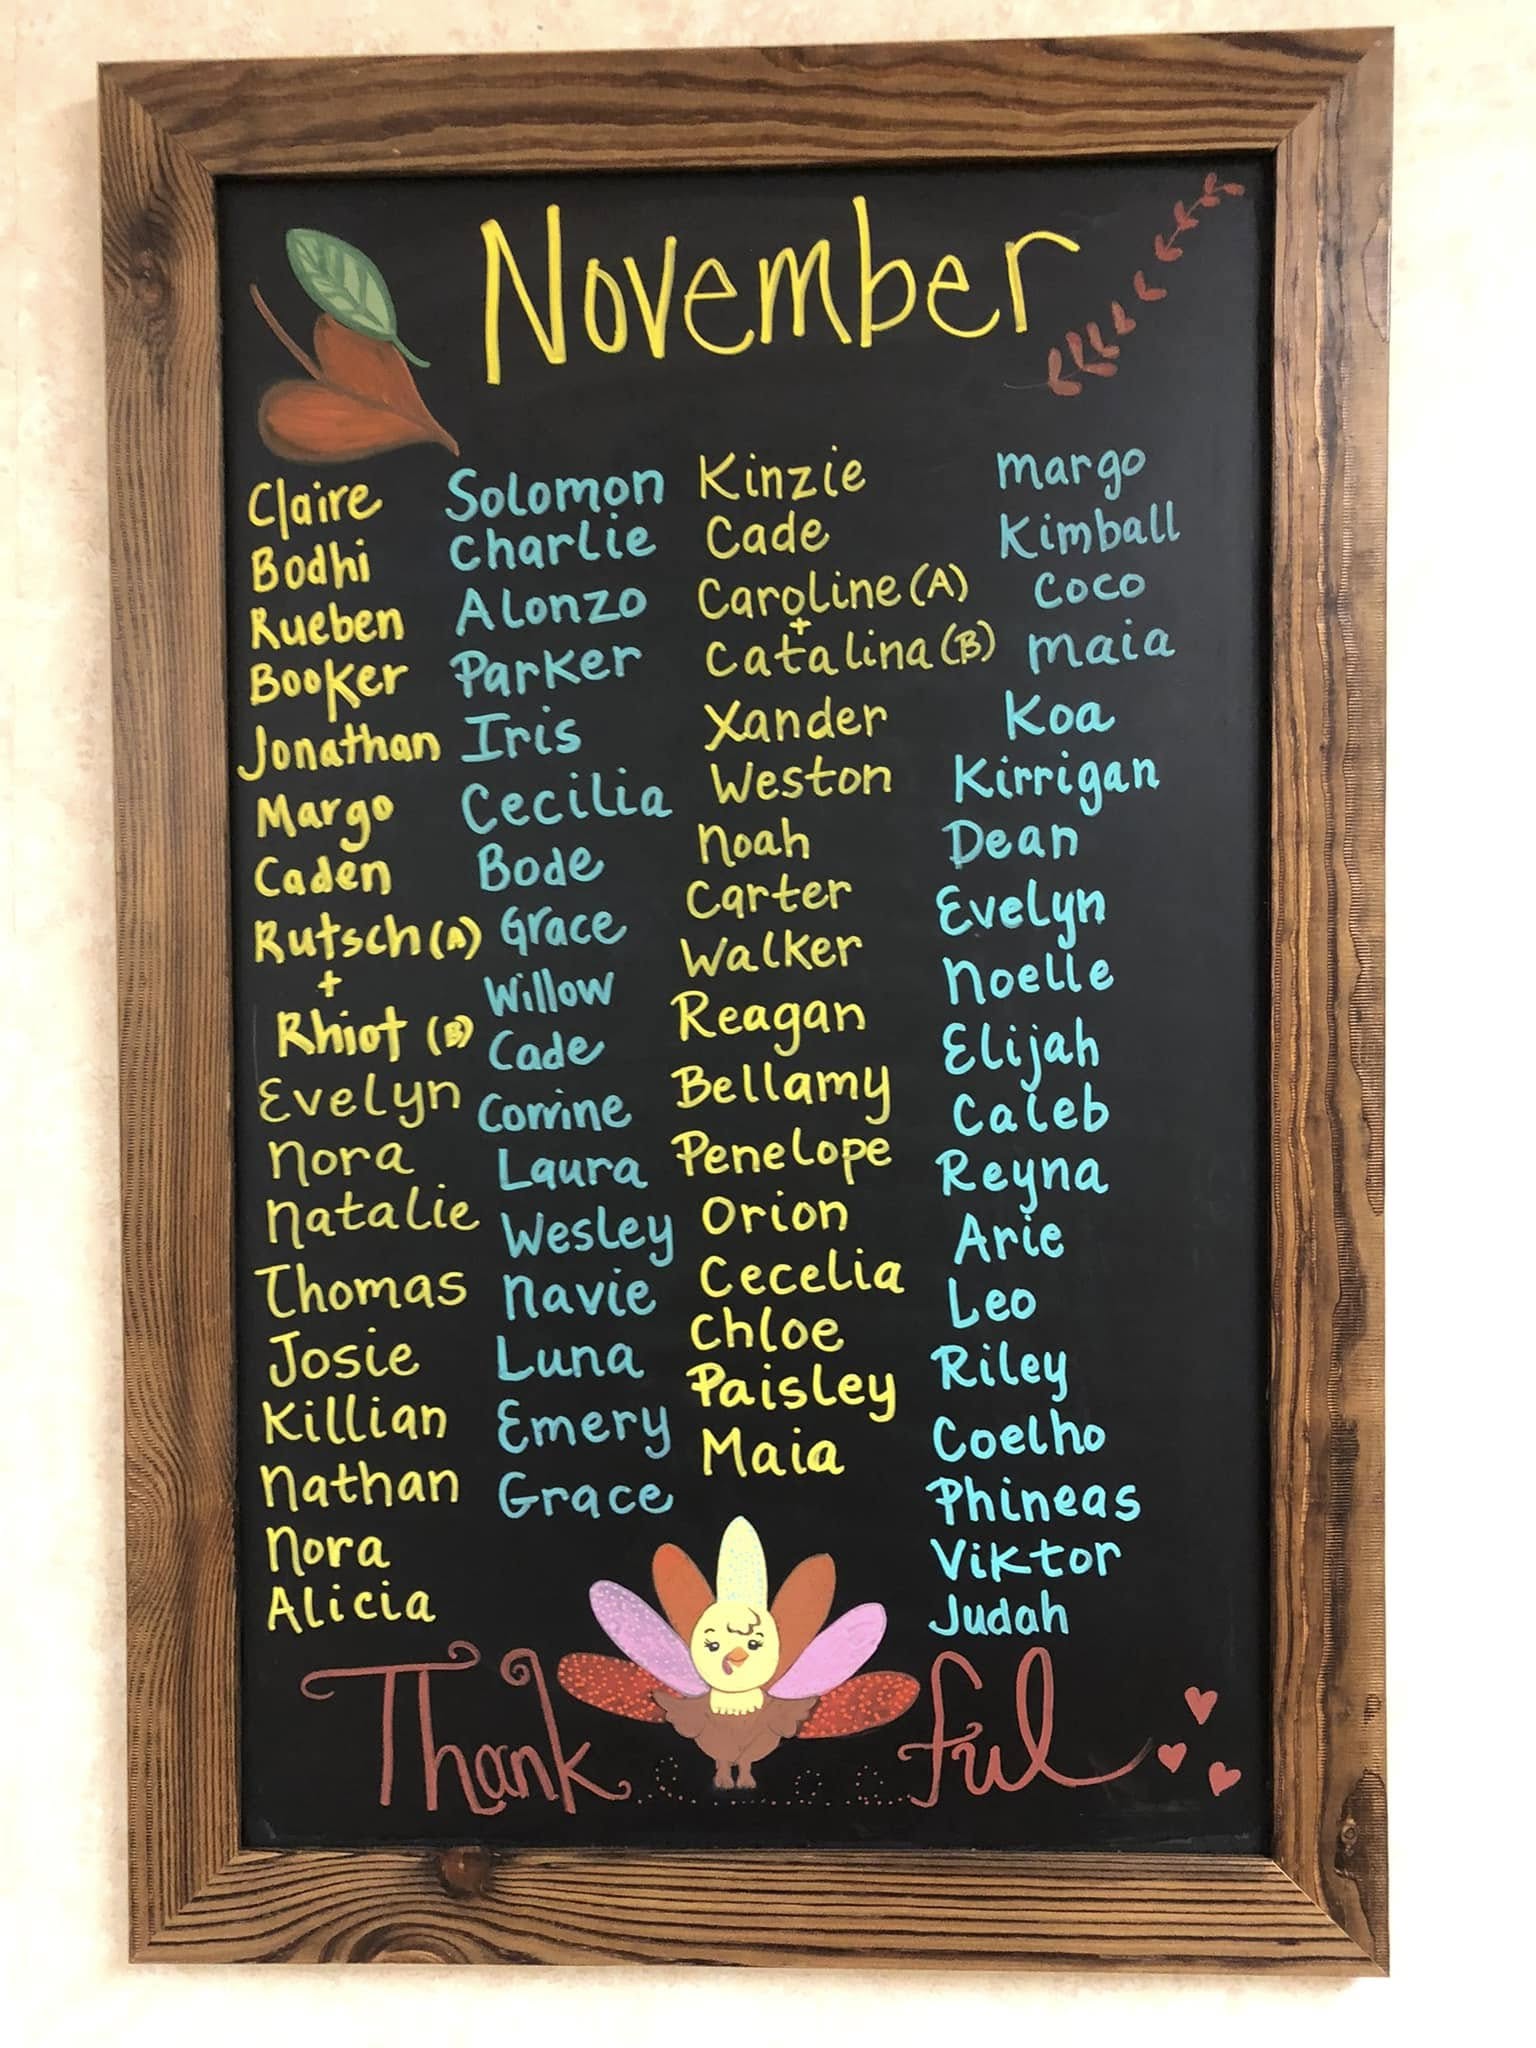 November
Claire
Bodhi
Rueben
Booker
Jonathan
Margo
Caden
Rutsch (A)
+
Rhiot (B)
Evelyn
Nora
Natalie
Thomas
Josie
Killian
Nathan
Nora
Alicia
Solomon
Charlie
Alonzo
Parker
Iris
Cecilia
Bode
Grace
Willow
Cade
Corrine
Laura
Wesley
Navie
Luna
Emery
Grace
Kinzie
Cade
Caroline (A)
+
Catalina (B)
Xander
Weston
Noah
Carter
Walker
Reagan
Bellamy
Penelope
Orion
Cecelia
Chloe
Paisley
Maia
margo
Kimball
Coco
maia
Koa
Kirrigan
Dean
Evelyn
Noelle
Elijah
Caleb
Reyna
Arie
Leo
Riley
Coelho
Phineas
Viktor
Judah
Thank ful